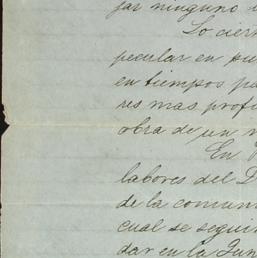 jar ninguno
Lo cier
pecular en su
en tiempos pa
res mas prof
obra de un
En
labores del D
de la comun
cual se segui
dar en la Jun